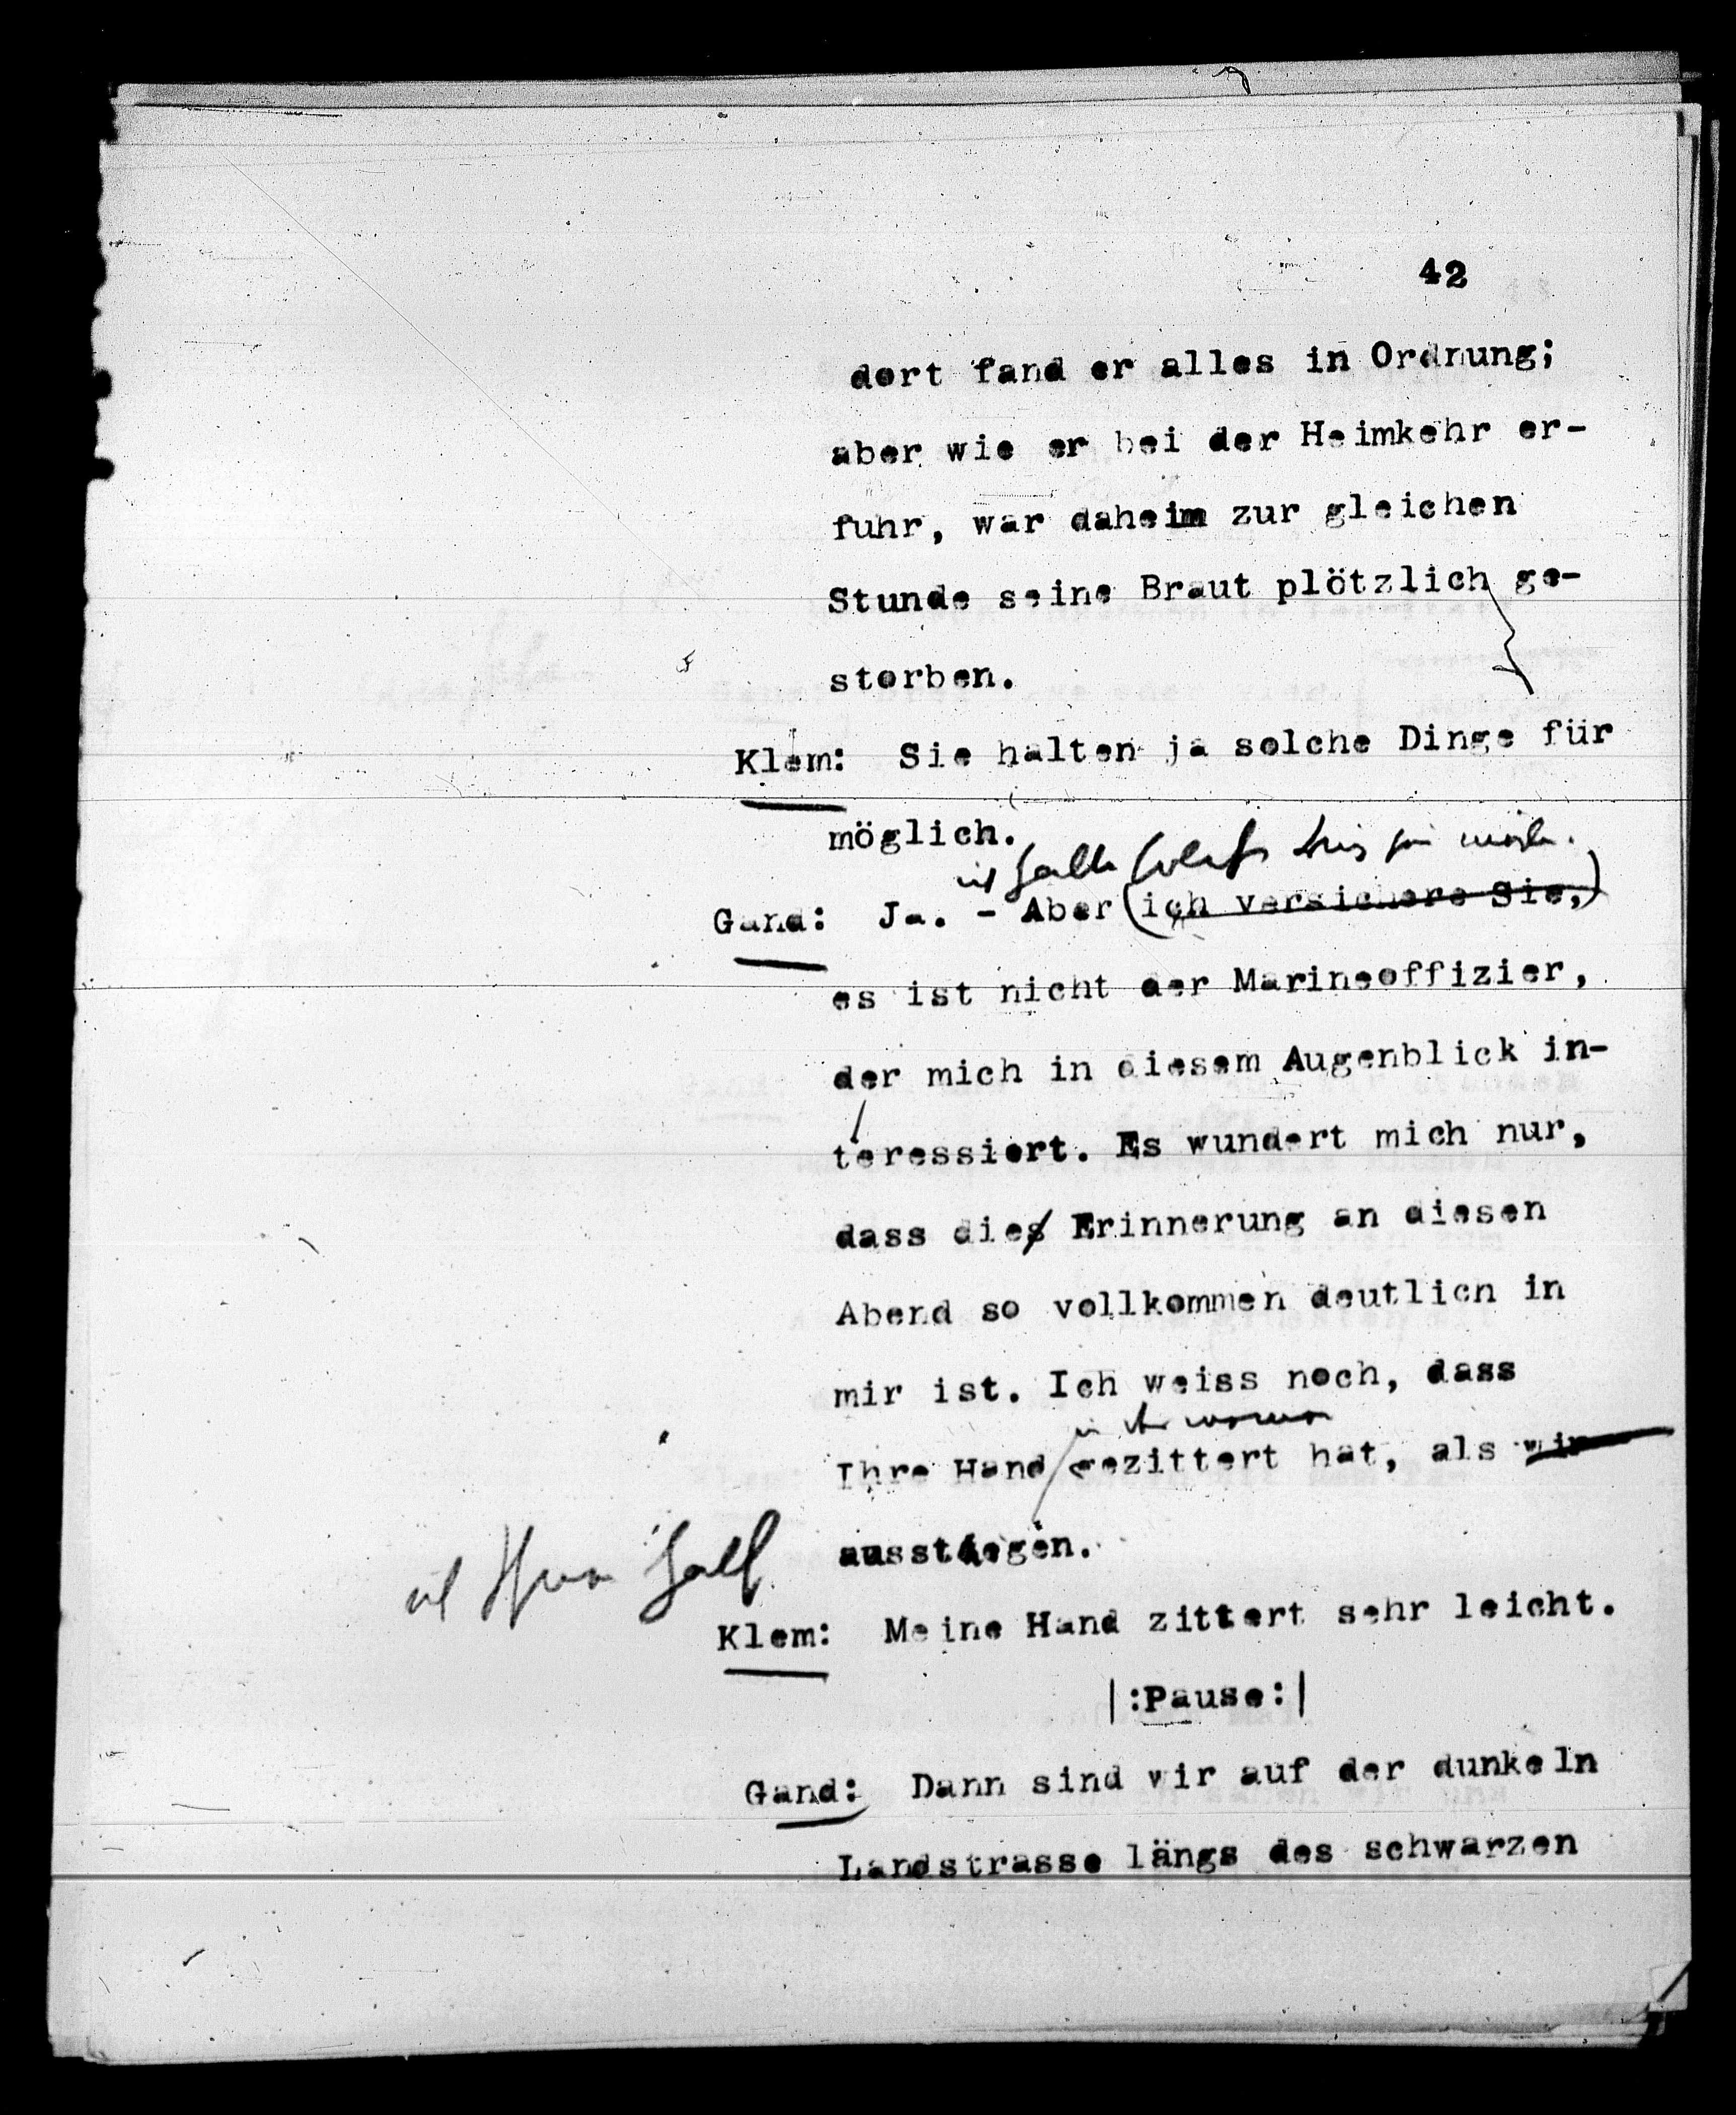 42
dort fand er alles in Ordnung;
aber wie er bei der Heimkehr er-
fuhr, war daheim zur gleichen
Stunde seine Braut plötzlich ge-
storben.
Klem: Sie halten ja solche Dinge für
möglich.
ich halte solche Dinge für mögl.
Gand: Ja. - Aber (ich versichere Sie,)
es ist nicht der Marineoffizier,
der mich in diesem Augenblick in-
teressiert. Es wundert mich nur,
dass dies Erinnerung an diesen
Abend so vollkommen deutlich in
mir ist. Ich weiss noch, dass
in der meinen
Ihre Hand gezittert hat, als wir
ausstiegen.
ich Ihnen half
Klem: Meine Hand zittert sehr leicht.
|:Pause:|
Gand: Dann sind wir auf der dunkeln
Landstrasse längs des schwarzen